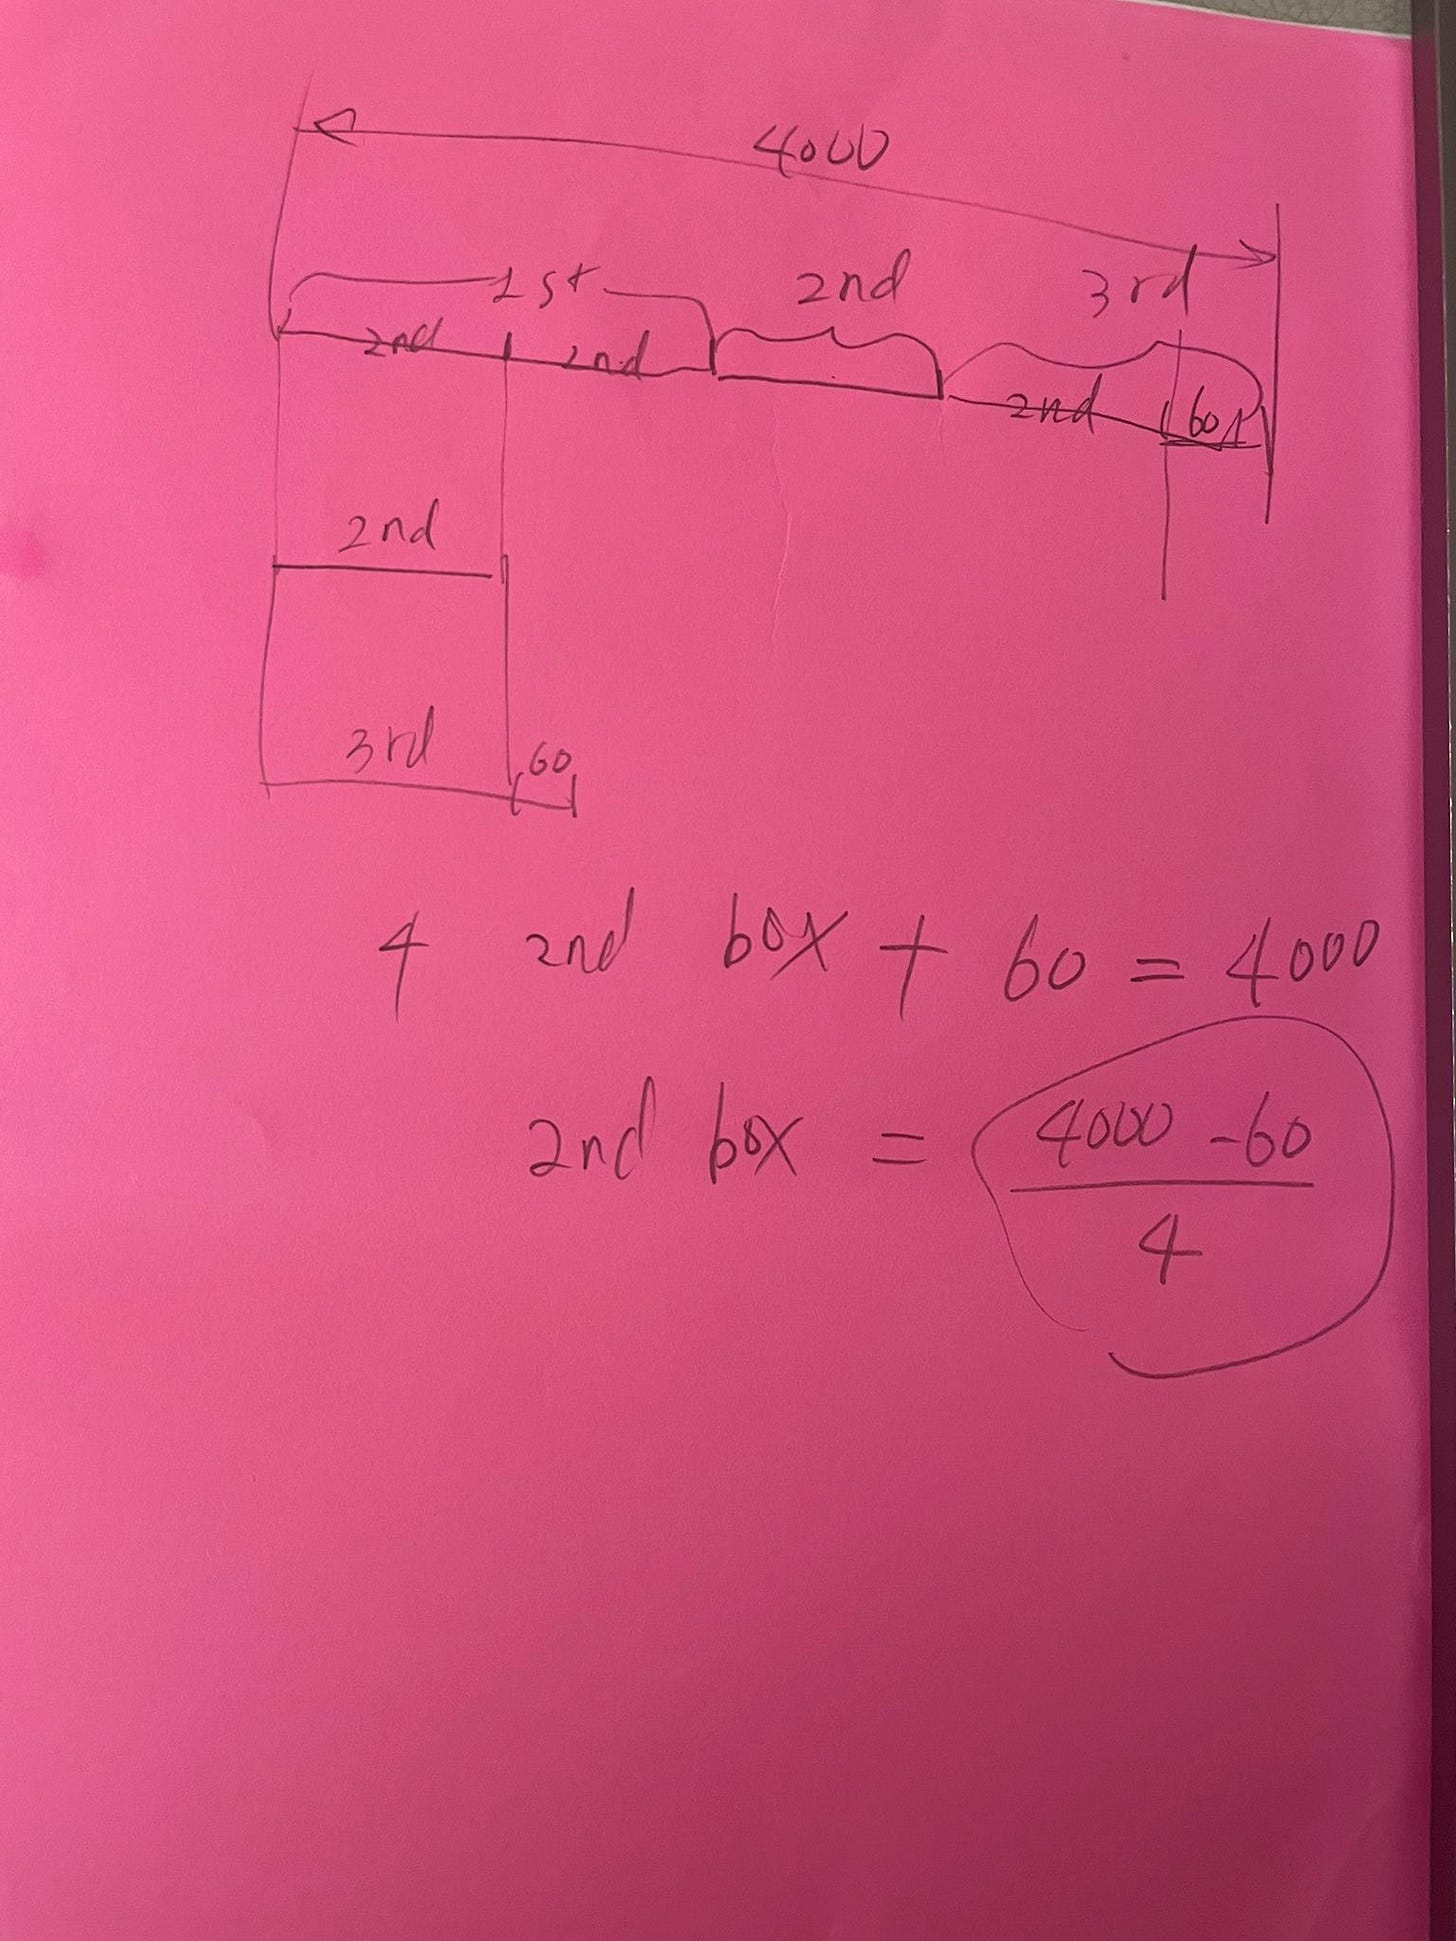 4000
1st 2nd 3rd
2nd 2nd 2nd 60
2nd
3rd 60
4 2nd box + 60 = 4000
2nd box = 4000 - 60
4